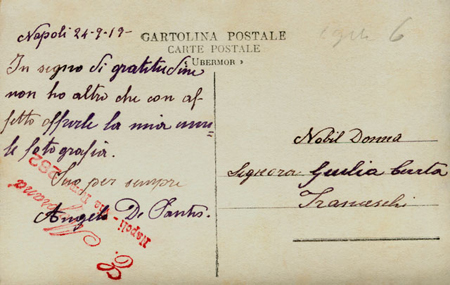 Napoli 24-9-19-
CARTOLINA POSTALE
CARTE POSTALE
UBERMOR
6
In segno di gratitudine
non ho altro che con af-
fetto offerle la mia umi-
le fotografia.
Sua per sempre
Angela De Santis.
Napoli -
282
Nobil Donna
Signora Giulia
Franceschi